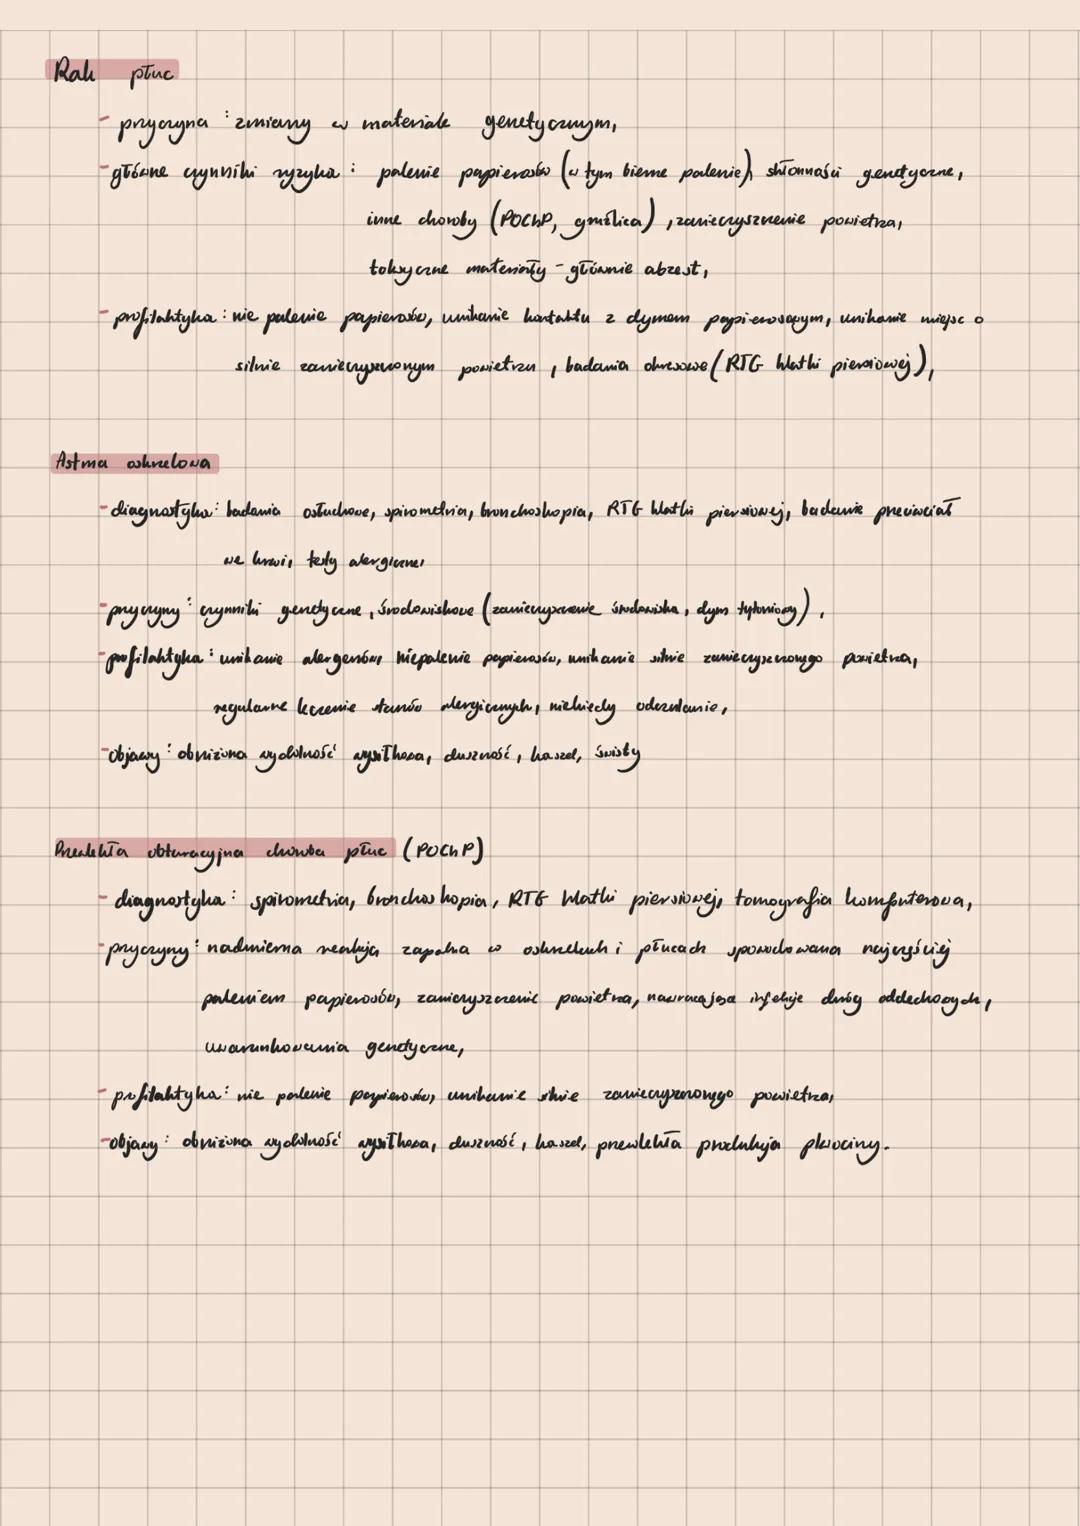 Rak płuc
- przyczyna : zmiany w materiale genetycznym,
- główne czynniki ryzyka : palenie papierosów (w tym bierne palenie), skłonności genetyczne,
inne choroby (POChP, gruźlica), zanieczyszczenie powietrza,
toksyczne materiały - głównie abzest,
- profilaktyka : nie palenie papierosów, unikanie kontaktu z dymem papierosowym, unikanie miejsc o
silnie zanieczyszczonym powietrzu, badania okresowe (RTG klatki piersiowej),
Astma oskrzelowa
- diagnostyka : badania osłuchowe, spirometria, bronchoskopia, RTG klatki piersiowej, badanie przeciwciał
we krwi, testy alergiczne,
- przyczyny : czynniki genetyczne, środowiskowe (zanieczyszczenie środowiska, dym tytoniowy),
- profilaktyka : unikanie alergenów, niepalenie papierosów, unikanie silnie zanieczyszczonego powietrza,
regularne leczenie stanów alergicznych, niekiedy odczulanie,
- objawy : obniżona wydolność wysiłkowa, duszność, kaszel, świsty
Przewlekła obturacyjna choroba płuc (POChP)
- diagnostyka : spirometria, bronchoskopia, RTG klatki piersiowej, tomografia komputerowa,
- przyczyny : nadmierna reakcja zapalna w oskrzelach i płucach spowodowana najczęściej
paleniem papierosów, zanieczyszczenie powietrza, nawracające infekcje dróg oddechowych,
uwarunkowania genetyczne,
- profilaktyka : nie palenie papierosów, unikanie silnie zanieczyszczonego powietrza,
- objawy : obniżona wydolność wysiłkowa, duszność, kaszel, przewlekła produkcja plwociny.